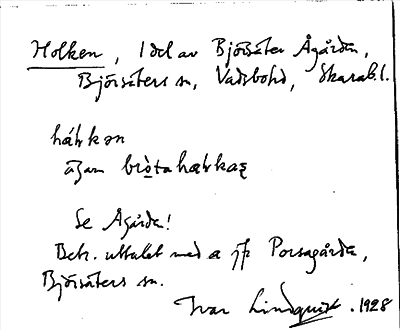 Holken, 1 del av Björsäter Ågården,
Björsäters sn, Vadsbohd, Skarab.l.
hárkən
ågam bròtahærkaȩ
Se Ågården!
Betr. uttalet med a jfr Porsagården,
Björsäters sn.
Ivar Lindquist. 1928